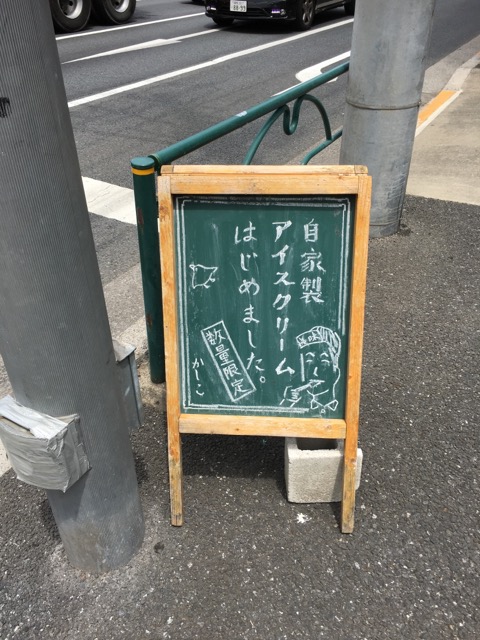 自家製
アイスクリーム
はじめました。
数量限定
かしこ